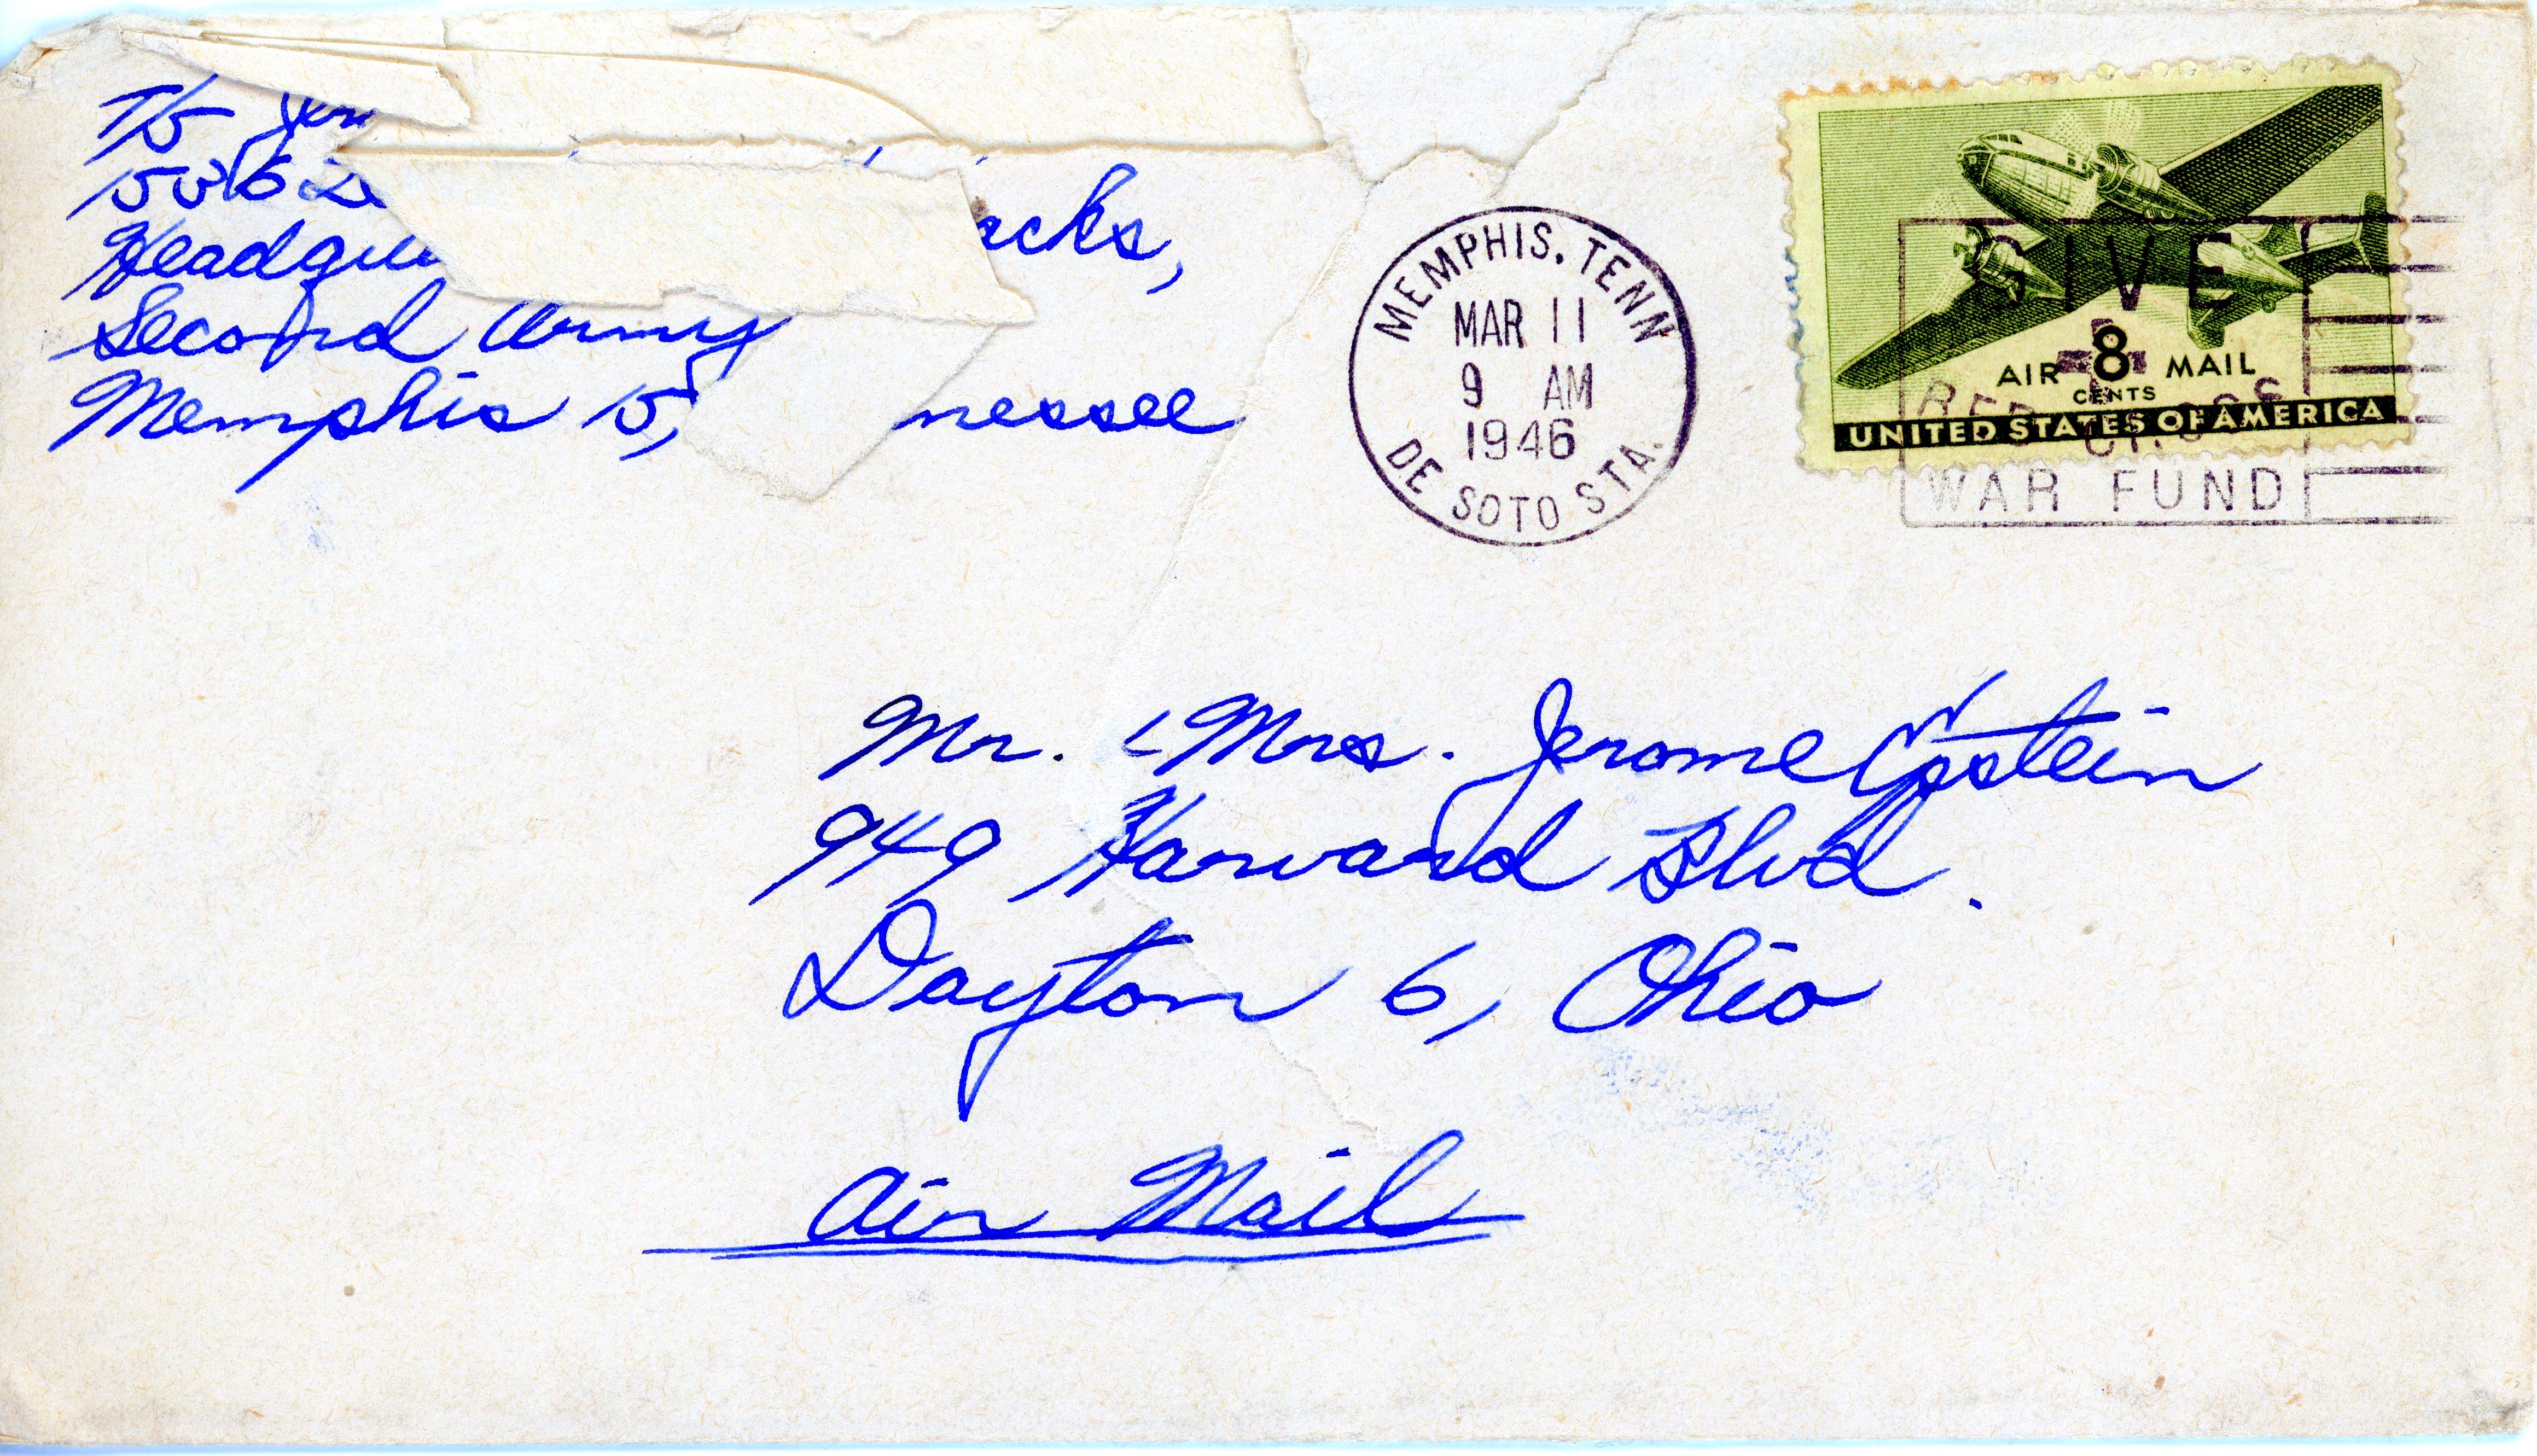 T/5 Jer
Headqu acks,
Second Army
Memphis 15, nessee
MEMPHIS, TENN
MAR 11
9 AM
1946
DE SOTO STA.
GIVE
RED CROSS
WAR FUND
AIR 8 MAIL
CENTS
UNITED STATES OF AMERICA
Mr. & Mrs. Jerome Epstein
949 Harvard Blvd.
Dayton 6, Ohio
Air Mail